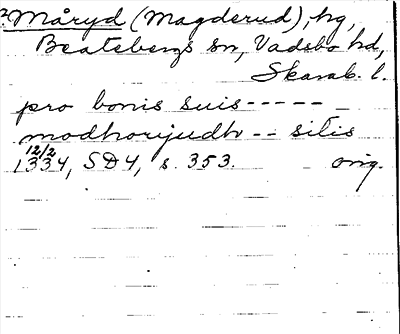 ?Måryd (Magderud), hg,
Beatebergs sn, Vadsbo hd,
Skarab. l.
pro bonis suis -----
modhorijudh -- sitis
12/2
1334, SD4, s. 353. orig.